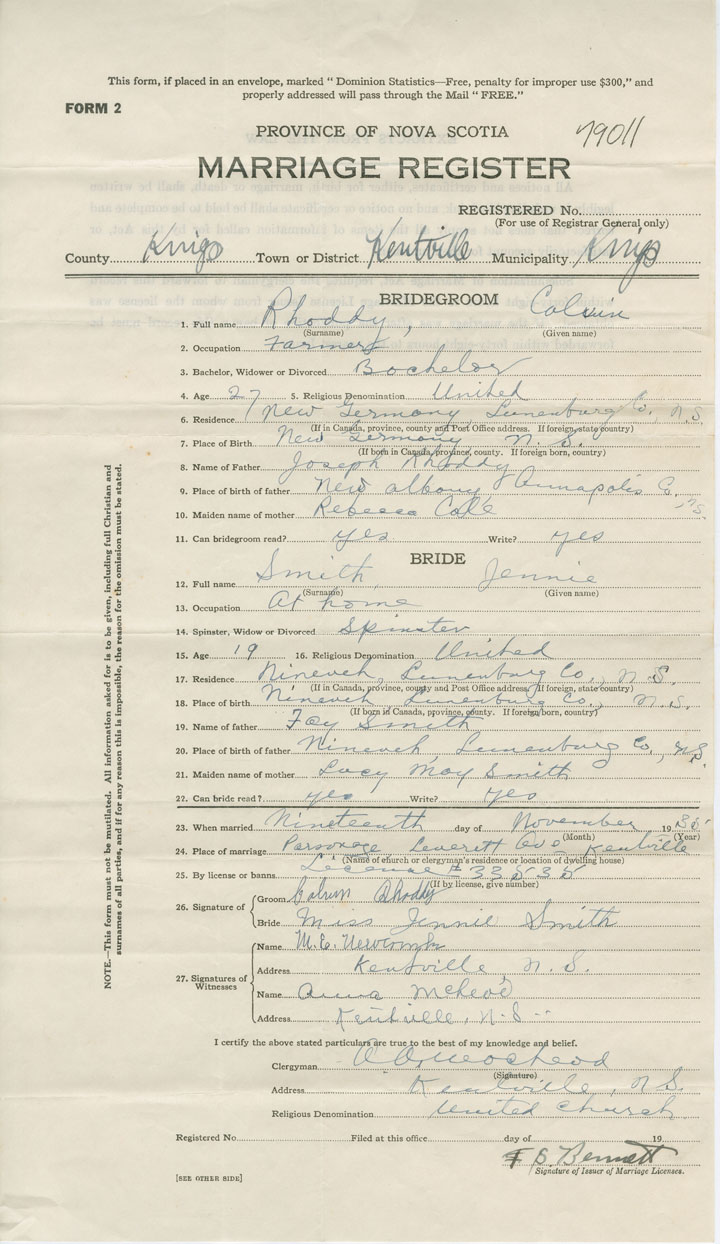 This form, if placed in an envelope, marked " Dominion Statistics—Free, penalty for improper use $300," and
properly addressed will pass through the Mail " FREE."
FORM 2
PROVINCE OF NOVA SCOTIA 79011
MARRIAGE REGISTER
REGISTERED No.
(For use of Registrar General only)
County Kings Town or District Kentville Municipality Kings
BRIDEGROOM
1. Full name Rhoddy, Calvin
(Surname) (Given name)
2. Occupation Farmer
3. Bachelor, Widower or Divorced Bachelor
4. Age 27 5. Religious Denomination United
6. Residence New Germany, Lunenburg Co., N.S.
(If in Canada, province, county and Post Office address. If foreign, state country)
7. Place of Birth New Germany N. S.
(If born in Canada, province, county. If foreign born, country)
8. Name of Father Joseph Rhoddy
9. Place of birth of father New Albany Annapolis Co., N.S.
10. Maiden name of mother Rebecca
11. Can bridegroom read? yes Write? yes
BRIDE
12. Full name Smith Jennie
(Surname) (Given name)
13. Occupation At home
14. Spinster, Widow or Divorced Spinster
15. Age 19 16. Religious Denomination United
17. Residence Nineveh, Lunenburg Co., N.S.
(If in Canada, province, county and Post Office address. If foreign, state country)
18. Place of birth Nineveh Lunenburg Co., N.S.
(If born in Canada, province, county. If foreign born, country)
19. Name of father Foy Smith
20. Place of birth of father Nineveh Lunenburg Co., N.S.
21. Maiden name of mother Lucy May Smith
22. Can bride read? yes Write? yes
23. When married Nineteenth day of November 1935
(Month) (Year)
24. Place of marriage Parsonage Leverett Ave Kentville
(Name of church or clergyman's residence or location of dwelling house)
25. By license or banns License # 33535
(If by license, give number)
26. Signature of Groom Calvin Rhoddy
Bride Miss Jennie Smith
27. Signatures of Witnesses
Name M. E. Newcombe
Address Kentville N. S.
Name Anna McLeod
Address Kentville, N.S.
I certify the above stated particulars are true to the best of my knowledge and belief.
Clergyman
(Signature)
Address Kentville, N S.
Religious Denomination United Church
Registered No. Filed at this office day of 19
F B Bennett
Signature of Issuer of Marriage Licenses.
[SEE OTHER SIDE]
NOTE.—This form must not be mutilated. All information asked for is to be given, including full Christian and
surnames of all parties, and if for any reason this is impossible, the reason for the omission must be stated.